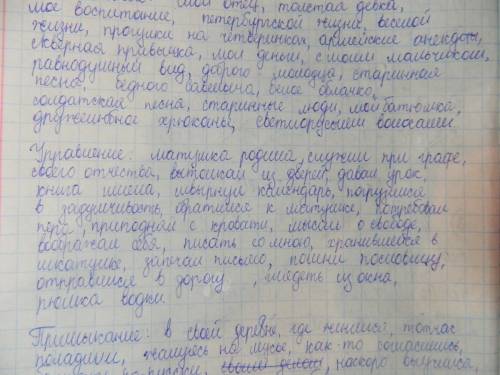 мое воспитание, мой отец, толстая девка,
петербургской жизни, веселой
жизни, прогулки на четверинках, армейские анекдоты,
скверная привычка, мои деньги, с моим мальчиком,
равнодушный вид, доброго молодца, старинная
песня, бедного савельича, белое облачко,
солдатская песня, старинные люди, мой батюшка,
дружелюбное хрюканье, светлорусыми волосами.
Управление: матушка родила, служил при графе,
своего отчества, вытолкал из дверей, давал урок,
книга имела, швырнул календарь, погрузился
в задумчивость, обратился к матушке, потребовал
перо, приподнял с кровати, мысли о свободе,
воображал себя, писать со мною, хранившейся в
шкатулке, запечатал письмо, помни пословицу,
отправился в дорогу, глядеть из окна,
рюмка водки.
Примыкание: в своей деревне, где женился, тотчас
поладили, как-то согласившись,
наскоро выучился,